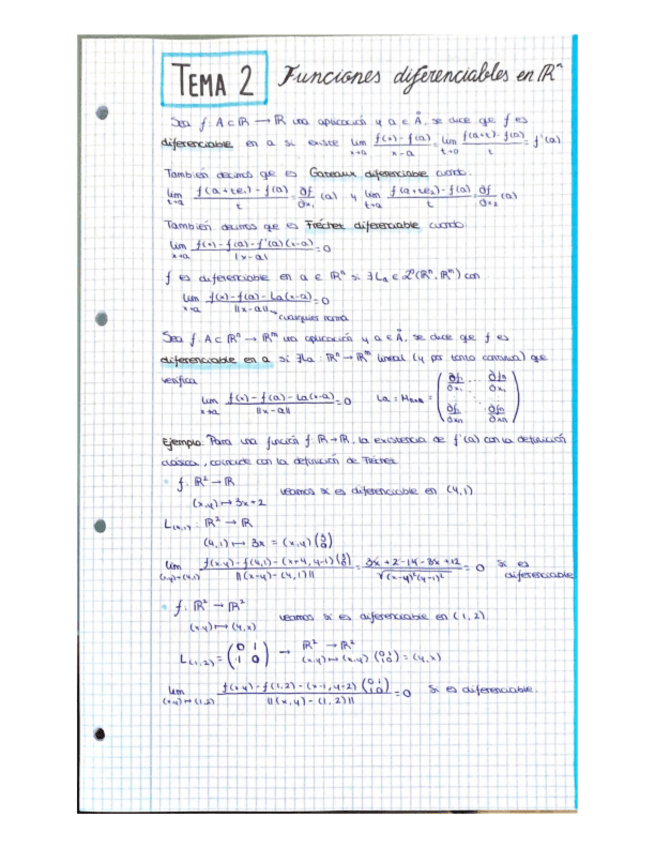 TEMA 2 Funciones diferenciables en ℝⁿ
Sea f: A⊂ℝ → ℝ una aplicación y a ∈ Å, se dice que f es
diferenciable en a si existe lim_{x→a} (f(x)-f(a))/(x-a) = lim_{t→0} (f(a+t)-f(a))/t = f'(a)
También decimos que es Gateaux diferenciable cuando:
lim_{t→a} (f(a+te₁)-f(a))/t = ∂f/∂x₁ (a) y lim_{t→a} (f(a+te₂)-f(a))/t = ∂f/∂x₂ (a)
También decimos que es Fréchet diferenciable cuando
lim_{x→a} (f(x)-f(a)-f'(a)(x-a))/|x-a| = 0
f es diferenciable en a ∈ ℝⁿ si ∃ La ∈ L(ℝⁿ, ℝᵐ) con
lim_{x→a} (f(x)-f(a)-La(x-a))/||x-a|| = 0
cualquier norma
Sea f: A⊂ℝⁿ → ℝᵐ una aplicación y a ∈ Å, se dice que f es
diferenciable en a si ∃La: ℝⁿ → ℝᵐ lineal (y por tanto continua) que
verifica
lim_{x→a} (f(x)-f(a)-La(x-a))/||x-a|| = 0
Ejemplo: Para una función f: ℝ→ℝ, la existencia de f'(a) con la definición
clásica, coincide con la definición de Fréchet
f: ℝ² → ℝ
(x,y) ↦ 3x+2 veamos si es diferenciable en (4,1)
L(4,1): ℝ² → ℝ
(4,1) ↦ 3x = (x,y) (3 0)
lim_{(x,y)→(4,1)} (f(x,y)-f(4,1)-(x-4,y-1)(3 0))/||(x,y)-(4,1)|| = (3x+2-14-3x+12)/√((x-4)²(y-1)²) = 0 sí es
diferenciable
f: ℝ² → ℝ²
(x,y) ↦ (y,x) veamos si es diferenciable en (1,2)
L(1,2) = (0 1 / 1 0) → ℝ² → ℝ²
(x,y) ↦ (x,y) (0 1 / 1 0) = (y,x)
lim_{(x,y)→(1,2)} (f(x,y)-f(1,2)-(x-1,y-2)(0 1 / 1 0))/||(x,y)-(1,2)|| = 0 Sí es diferenciable.